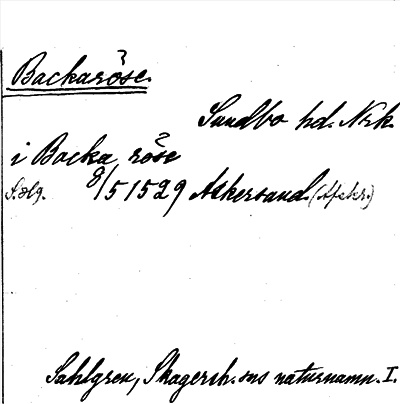 ?
Backaröse.
Sundbo hd. Nrk.
?
i Backa röse
8/5 1529 Askersund. (Afskr.)
Sahlgren, Skagersh. sns naturnamn. I.